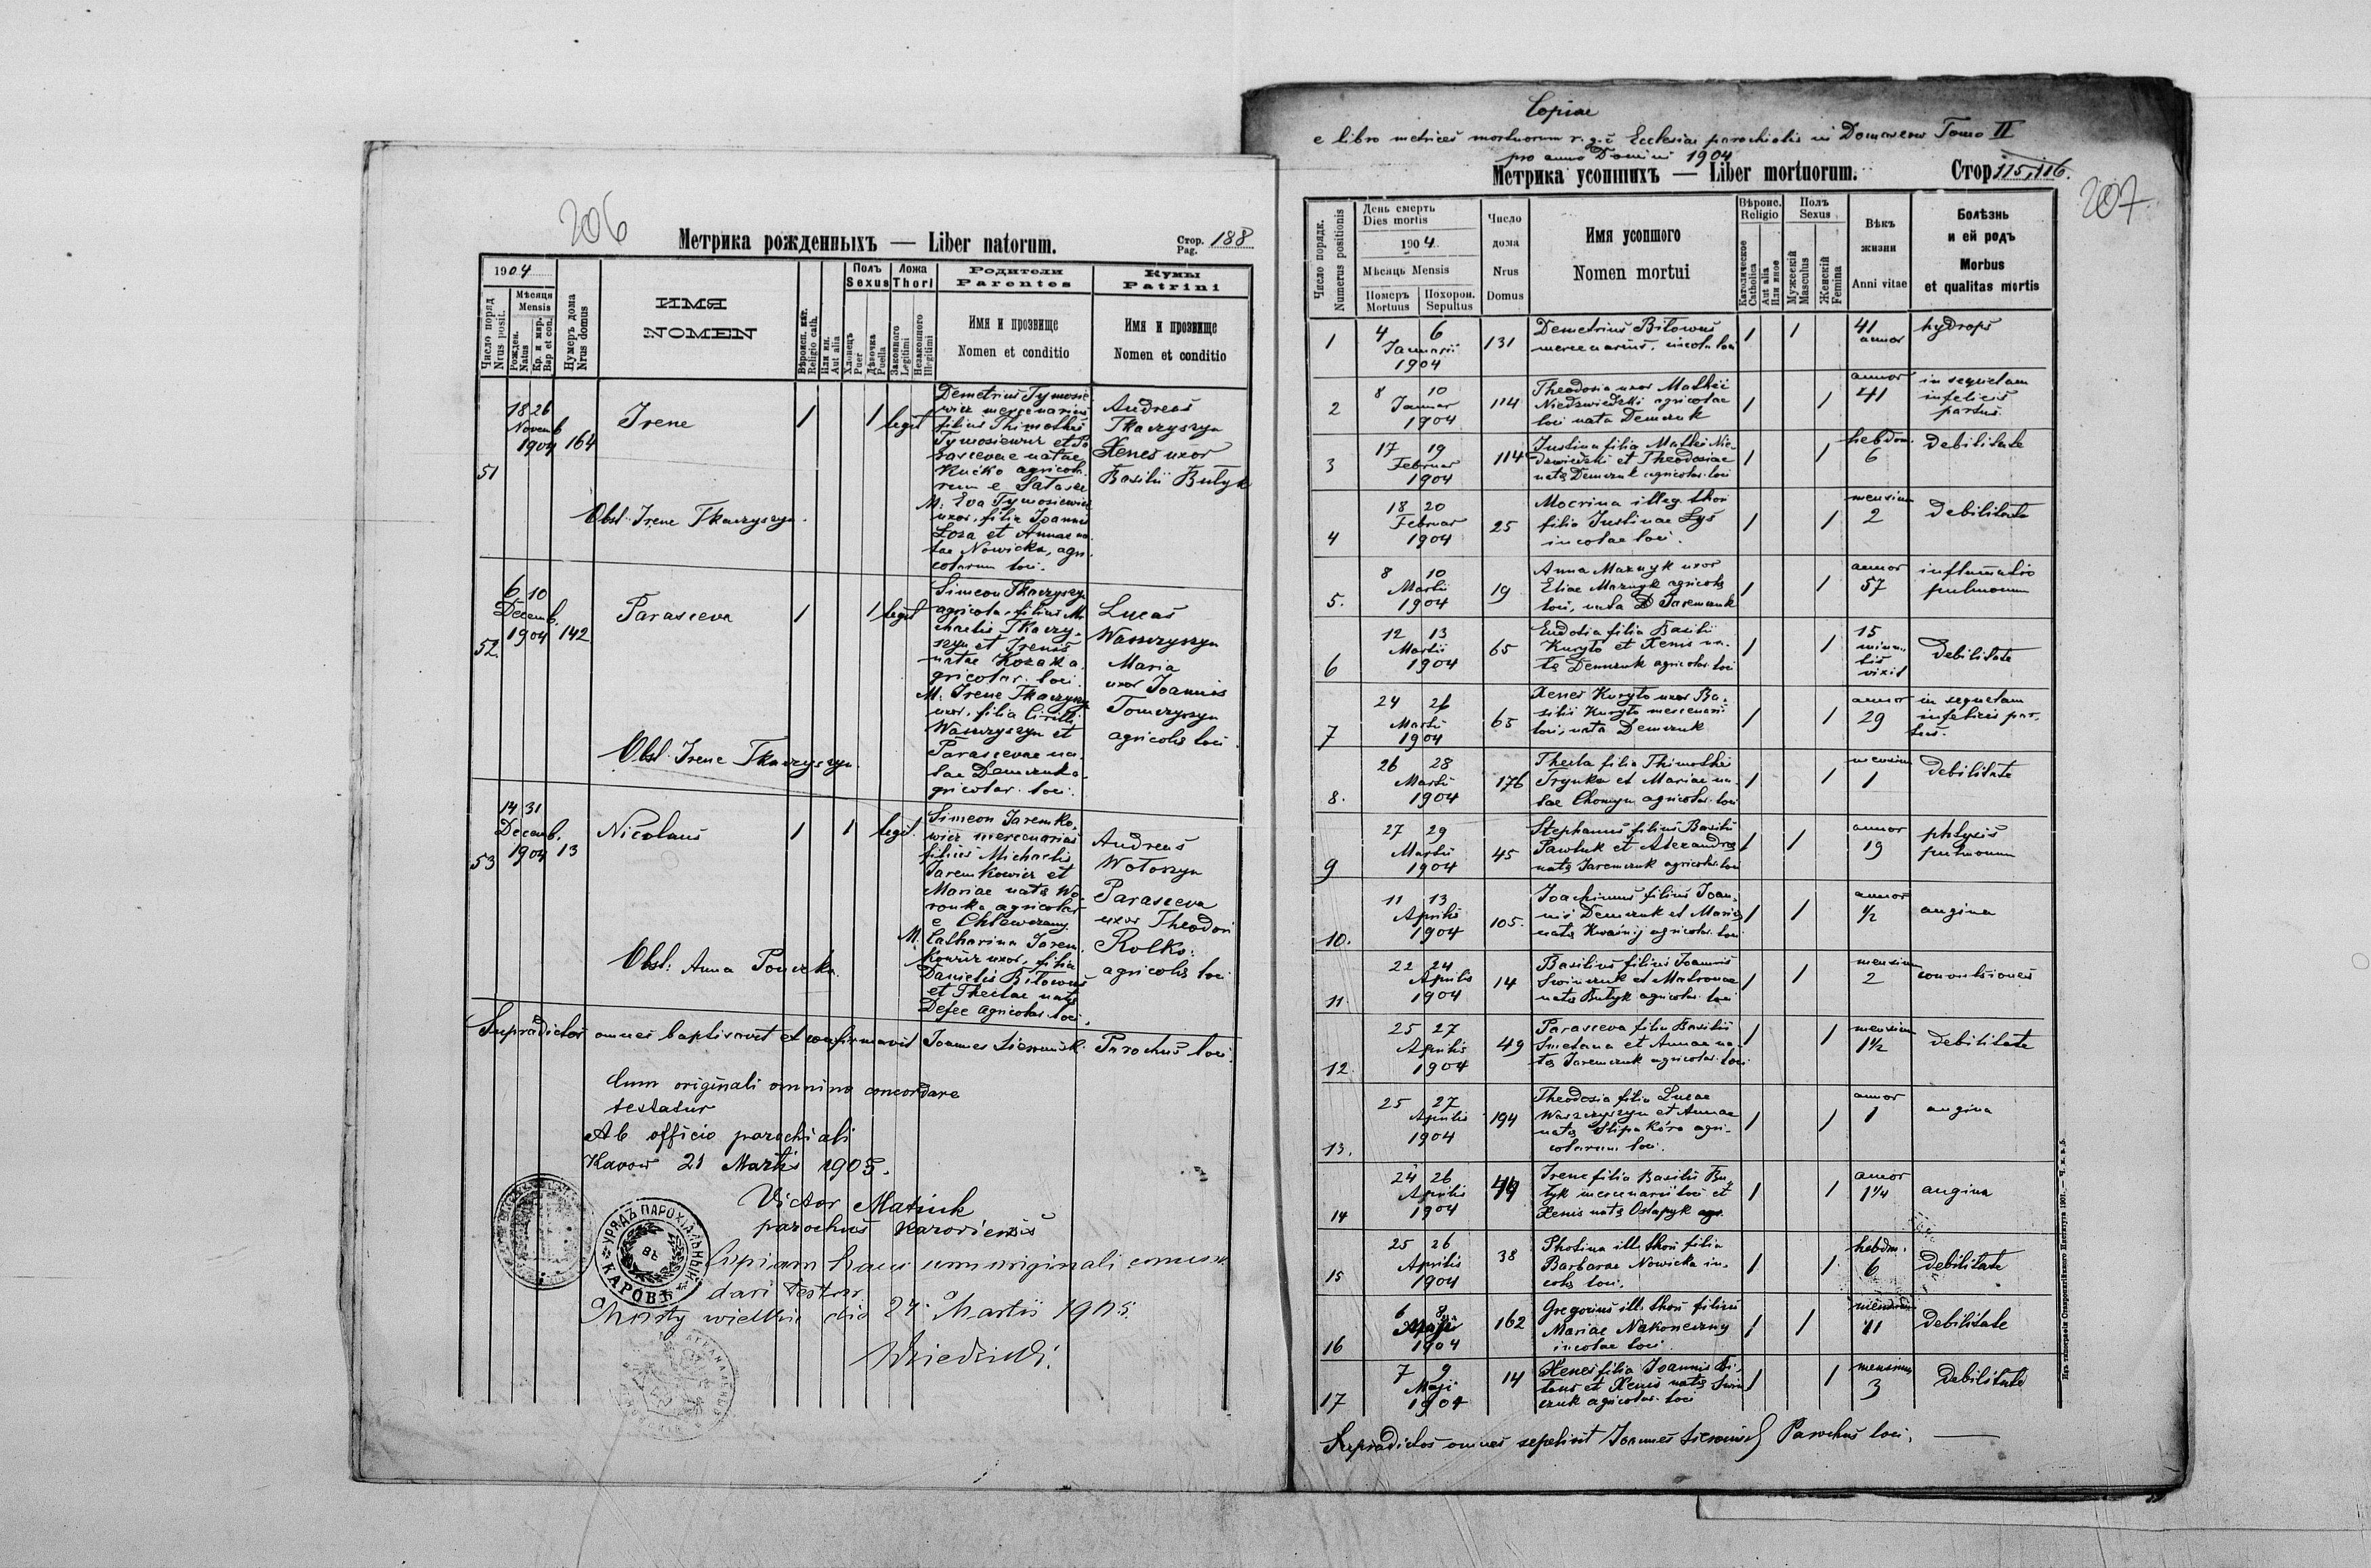 206
Метрика рожденныхъ — Liber natorum.
Стор. Pag. 188
1904
Число поряд. Nrus posit.
Мѣсяця Mensis
Рожден. Natus
Кр. и мѵр. Bap et con.
Нумеръ дома Nrus domus
ИМЯ
NOMEN
Вѣроисп. кат. Religio cath.
Или ин. Aut alia
Полъ Sexus
Хлопецъ Puer
Дѣвочка Puella
Ложа Thori
Законного Legitimi
Незаконного Illegitimi
Родители
Parentes
Имя и прозвище
Nomen et conditio
Кумы
Patrini
Имя и прозвище
Nomen et conditio
51
18 26
Novemb
1904 164
Irene
1 1 legit
Demetrius Tymosie
wicz mercenarius
filius Thimothei
Tymosiewicz et Pa
rascevae natae
Kućko agricola
rum e
M: Eva Tymosiewicz
uxor, filia Joannis
Łoza et Annae na
tae Nowicka, agri
colarum loci.
Andreas
Tkaczyszyn
Xenes uxor
Basilii Bułyk
Obst. Irene Tkaczyszyn.
52.
6 10
Decemb.
1904 142
Parasceva
1 1 legit
Simeon Tkaczyszyn
agricola, filius Mi
chaelis Tkaczy-
szyn et Irenes
natae Kozak a
gricolar. loci.
M. Irene Tkaczyszyn
uxor, filia Cirilli
Waszczyszyn et
Parascevae na
tae Demczuk a
gricolar. loci.
Lucas
Waszczyszyn
Maria
uxor Joannis
Tomczyszyn
agricolae loci.
Obst. Irene Tkaczyszyn
53
14 31
Decemb.
1904 13
Nicolaus
1 1 legit.
Simeon Jaremko
wicz mercenarius
filius Michaelis
Jaremkowicz et
Mariae natae Wo
ronka agricolar.
e Chlewczany
M. Catharina Jarem
kowicz uxor, filia
Danielis Bitowus
et Theclae natae
Defec agricolar. loci.
Andreas
Wołoszyn
Parasceva
uxor Theodori
Rolko.
agricolae loci
Obst: Anna
Supradictos omnes baptisavit et confirmavit Joannes Parochus loci.
Cum originali omnino concordare
testatur
Ab officio parochiali
Karow 21 Martii 1905.
Victor Matiuk
parochus Karoviensis
УРЯДЪ ПАРОХІАЛЬНЫЙ
ВЪ
КАРОВѢ
Copiam hanc cum originali
dari testor
Mosty wielkie die 27. Martii 1905.
Copiae
e libro metrices mortuorum r. g. c. Ecclesiae parochialis in Domaszow Tomo II
pro anno Domini 1904
Метрика усопшихъ — Liber mortuorum.
Стор 115, 116.
207
Число порядк. Numerus positionis
День смерть Dies mortis
1904
Мѣсяць Mensis
Померъ Mortuus
Похорон. Sepultus
Число дома Nrus Domus
Имя усопшого
Nomen mortui
Вѣроис. Religio
Католическое Catholica
Aut alia Или иное
Полъ Sexus
Мужескій Masculus
Женскій Femina
Вѣкъ жизни Anni vitae
Болѣзнь
и ей родъ
Morbus
et qualitas mortis
1
4 6
Januarii
1904
131
Demetrius Bitowus
mercenarius, incola loci
1 1
41
annor
hydrops
2
8 10
Januar
1904
114
Theodosia uxor Mathei
Niedzwiedzki agricolae
loci nata Demczuk
1 1
annor
41
in sequelam
infelicis
partus
3
17 19
Februar
1904
114
Justina filia Mathei Nie-
dzwiedzki et Theodosiae
natae Demczuk agricolar. loci
1 1
hebdom.
6
debilitate
4
18 20
Februar
1904
25
Macrina illeg. thori
filia Justinae Łyś
incolae loci.
1 1
mensium
2
debilitate
5.
8 10
Martii
1904
19
Anna Maznyk uxor
Eliae Maznyk agricolae
loci, nata Jaremczuk
1 1
annor
57
inflamatio
pulmonum
6
12 13
Martii
1904
65
Eudosia filia Basilii
Kuryło et Xenis na-
tae Demczuk agricolar. loci
1 1
15
minu-
tis
vixit
debilitate
7
24 26
Martii
1904
65
Xenes Kuryło uxor Ba-
silii Kuryło mercenarii
loci, nata Demczuk
1 1
annor
29
in sequelam
infelicis par-
tus.
8.
26 28
Martii
1904
176
Thecla filia Thimothei
Trynka et Mariae na-
tae Chomyn agricolar. loci
1 1
mensium
1
debilitate
9
27 29
Martii
1904
45
Stephanus filius Basilii
Pawluk et Alexandrae
natae Jaremczuk agricolar. loci
1 1
annor
19
phtysis
pulmonum
10.
11 13
Aprilis
1904
105.
Joachimus filius Joan-
nis Demczuk et Mariae
natae Kwaśnij agricolar. loci
1 1
annor
½
angina
11
22 24
Aprilis
1904
14
Basilius filius Joannis
Swinczuk et Matronae
natae Bułyk agricolar. loci
1 1
mensium
2
convulsiones
12
25 27
Aprilis
1904
49
Parasceva filia Basilii
Smetana et Annae na-
tae Jaremczuk agricolar. loci
1 1
mensium
1½
debilitate
13.
25 27
Aprilis
1904
194
Theodosia filia Lucae
Waszczyszyn et Annae
natae agri-
colarum loci.
1 1
annor
1
angina
14
24 26
Aprilis
1904
Irene filia Basilii Bu-
łyk mercenarii loci et
Xenis natae Ostapyk agr.
1 1
annor
1¼
angina
15
25 26
Aprilis
1904
38
Photina ill. thori filia
Barbarae Nowicka in-
colae loci.
1 1
hebdm.
6
debilitate
16
6 8
Maji
1904
162
Gregorius ill. thori filius
Mariae Nakoneczny
incolae loci
1 1
mensium
11
debilitate
17
7 9
Maji
1904
14
Xenes filia Joannis Bi-
tous et Xenis natae Swin
czuk agricolar. loci
1 1
mensium
3
debilitate
Supradictos omnes sepelivit Joannes Parochus loci.